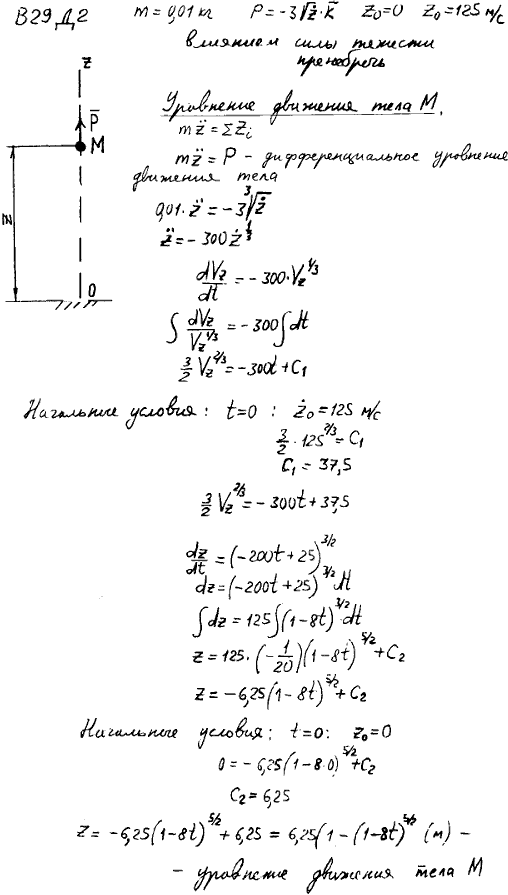 В29 Д2 m = 0,01 кг P = -3∛ż·k̄ Z₀=0 Ż₀=125 м/с
влиянием силы тяжести
пренебречь
Z
P̄
M
z
O
Уравнение движения тела М.
mz̈ = ΣZᵢ
mz̈ = P - дифференциальное уравнение
движения тела
0,01·z̈ = -3∛ż
z̈ = -300 ż^(1/3)
dVz/dt = -300·Vz^(1/3)
∫ dVz/Vz^(1/3) = -300∫dt
3/2 Vz^(2/3) = -300t + C₁
Начальные условия: t=0 : ż₀=125 м/с
3/2 · 125^(2/3) = C₁
C₁ = 37,5
3/2 Vz^(2/3) = -300t + 37,5
dz/dt = (-200t + 25)^(3/2)
dz = (-200t + 25)^(3/2) dt
∫dz = 125∫(1-8t)^(3/2) dt
z = 125·(-1/20)(1-8t)^(5/2) + C₂
z = -6,25(1-8t)^(5/2) + C₂
Начальные условия: t=0: z₀=0
0 = -6,25(1-8·0)^(5/2) + C₂
C₂ = 6,25
Z = -6,25(1-8t)^(5/2) + 6,25 = 6,25(1-(1-8t)^(5/2) (м) -
- уравнение движения тела М